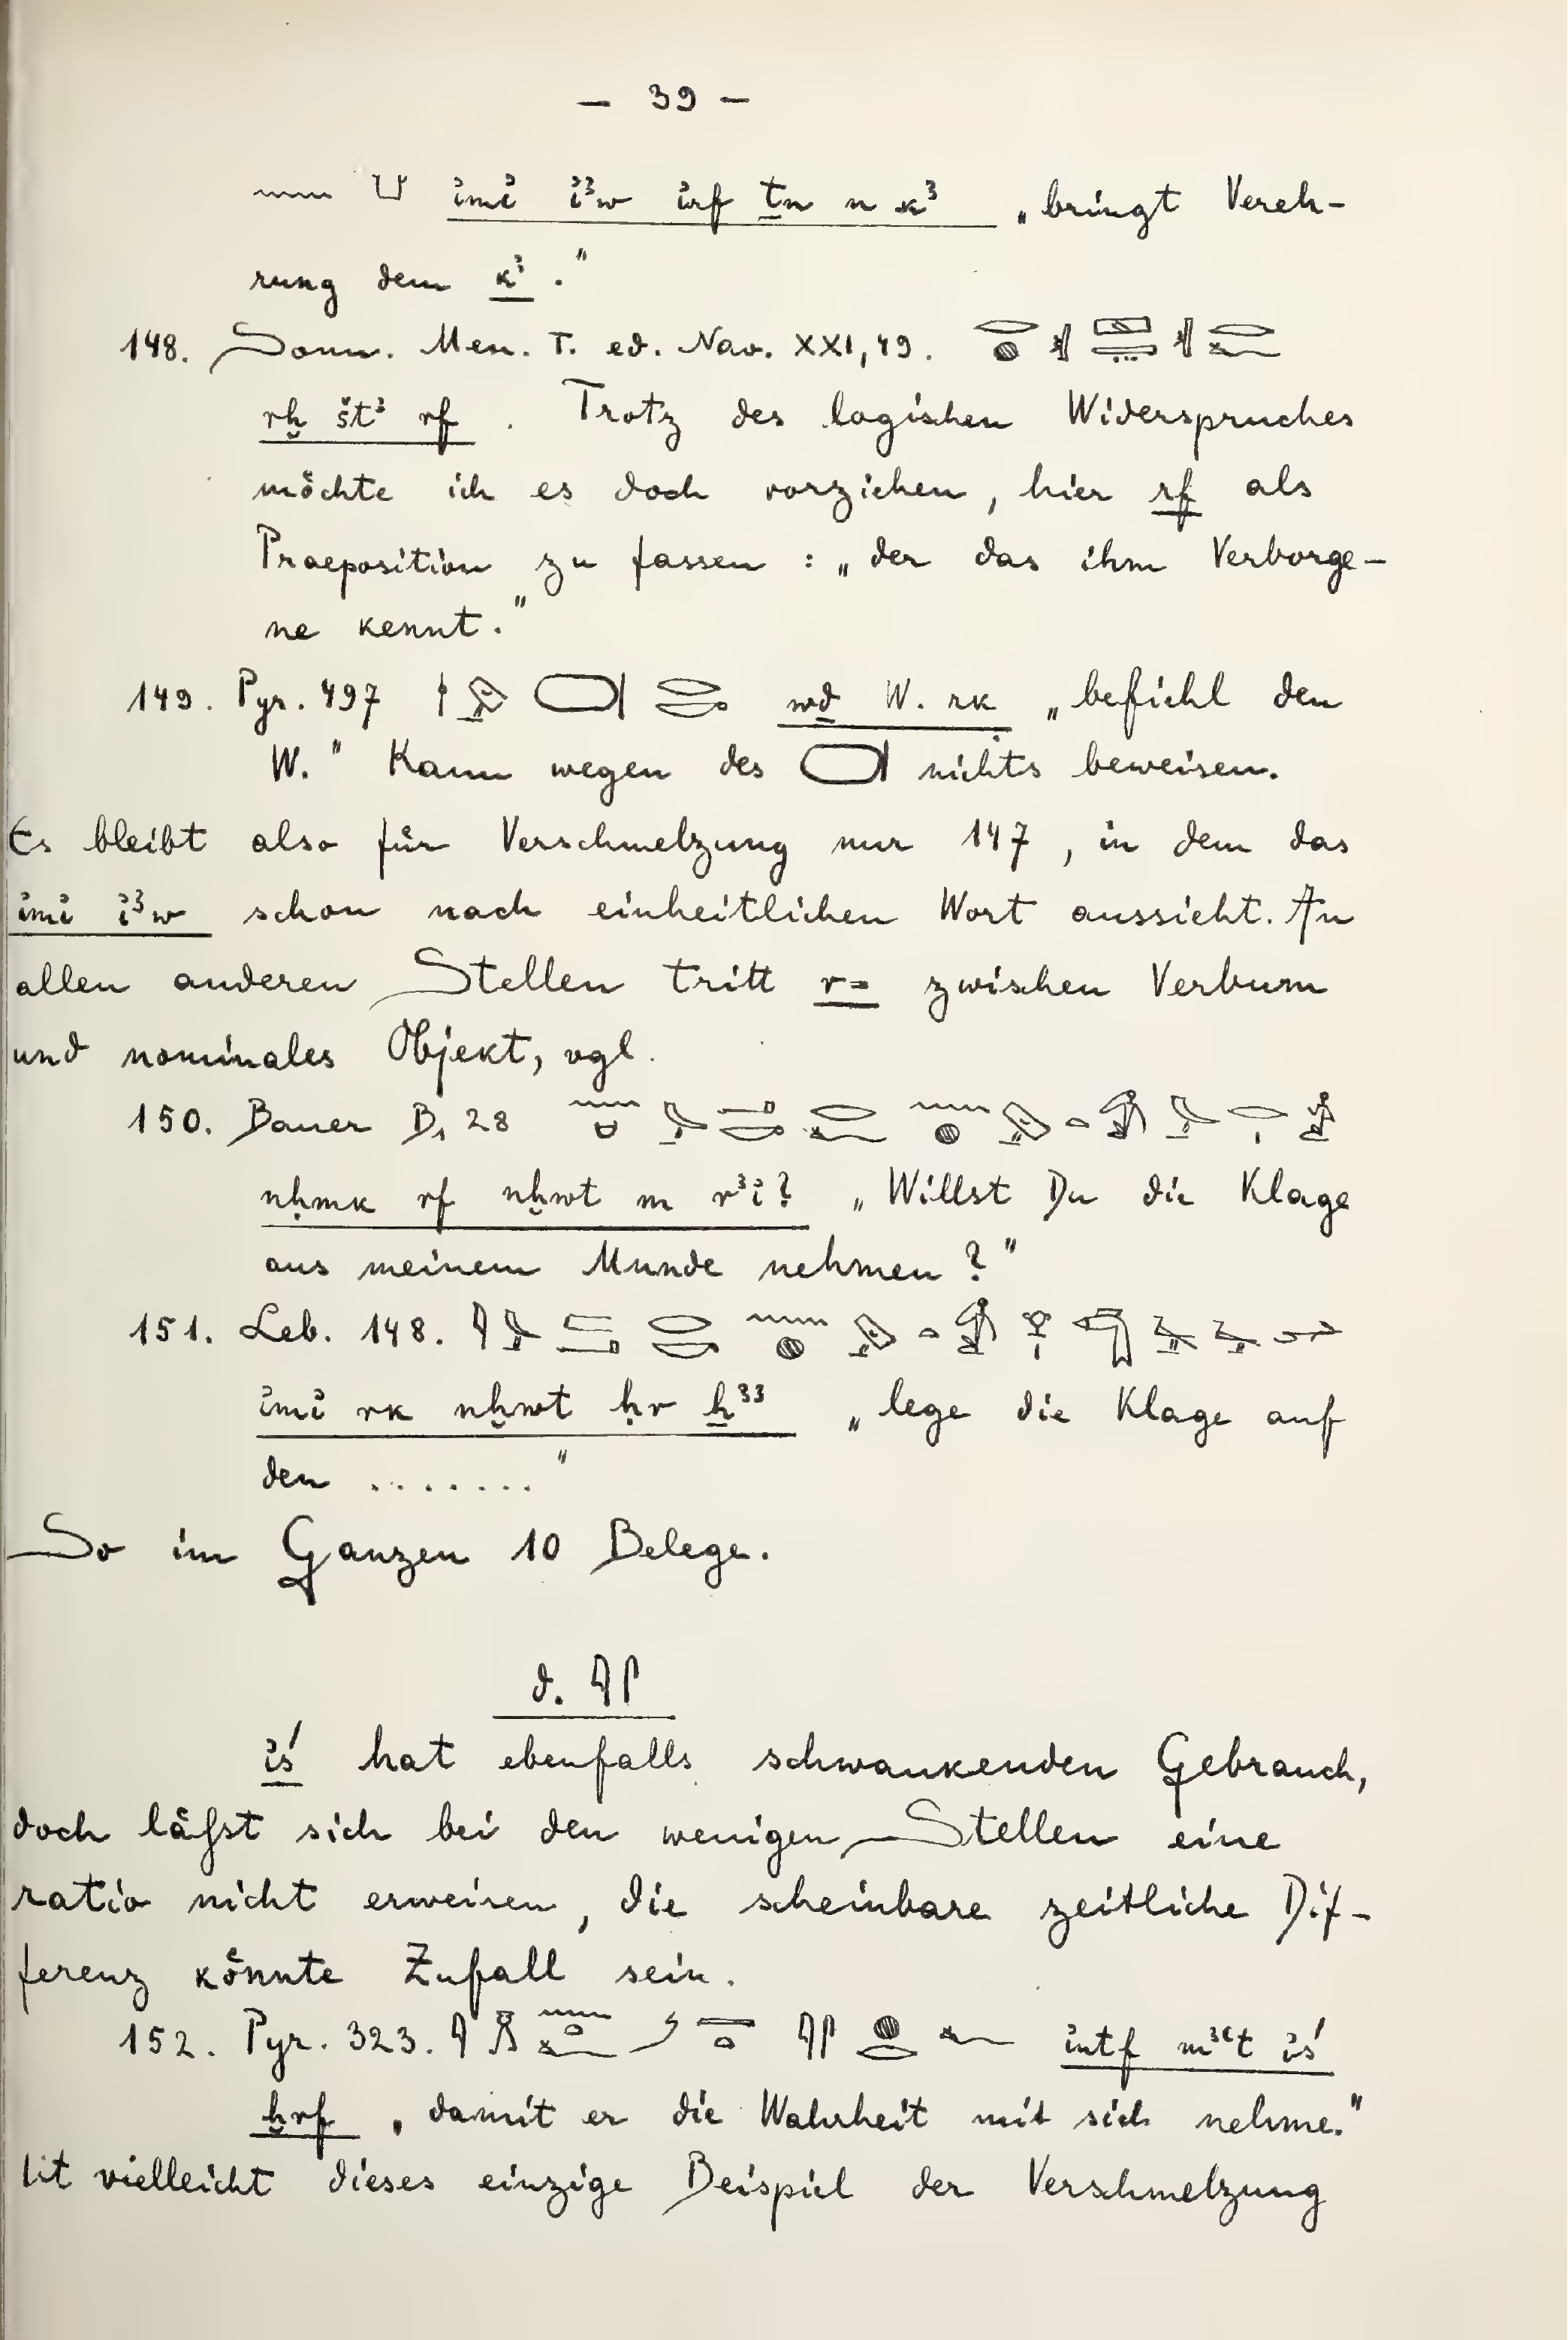 — 39 —
𓈖 𓂓 ꞽmꞽ ꞽꜣw ꞽrf ṯn n kꜣ „bringt Vereh-
rung dem kꜣ."
148. Sonn. Men. T. ed. Nav. XXI, 49.
rḫ štꜣ rf . Trotz des logischen Widerspruches
möchte ich es doch vorziehen, hier rf als
Praeposition zu fassen : „der das ihm Verborge-
ne kennt."
149. Pyr. 497 𓍷 𓂋𓎡 wḏ W. rk „befiehl den
W." Kann wegen des 𓍷 nichts beweisen.
Es bleibt also für Verschmelzung nur 147, in dem das
ꞽmꞽ ꞽꜣw schon nach einheitlichen Wort aussieht. An
allen anderen Stellen tritt r= zwischen Verbum
und nominales Objekt, vgl.
150. Bauer B₁ 28
nḥmk rf nḫwt m rꜣꞽ? „Willst Du die Klage
aus meinem Munde nehmen?"
151. Leb. 148.
ꞽmꞽ rk nḫwt ḥr ẖꜣꜣ „lege die Klage auf
den ........"
So im Ganzen 10 Belege.
d. 𓇋𓋴
ꞽś hat ebenfalls schwankenden Gebrauch,
doch läßst sich bei den wenigen Stellen eine
ratio nicht erweisen, die scheinbare zeitliche Dif-
ferenz könnte Zufall sein.
152. Pyr. 323. 𓇋𓋴 𓐍𓂋𓆑 ꞽntf mꜣꜥt ꞽś
ḫrf „damit er die Wahrheit mit sich nehme."
vielleicht dieses einzige Beispiel der Verschmelzung